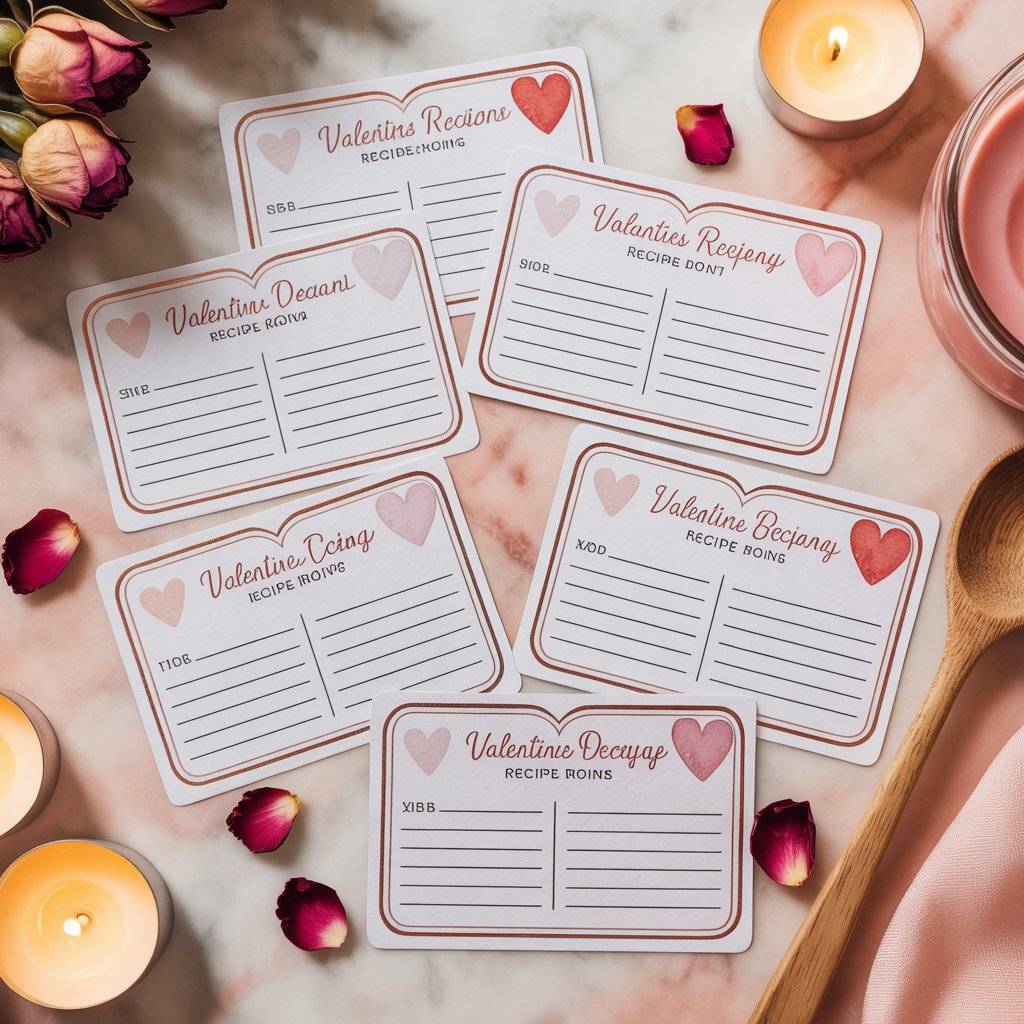 Valentins Recions
RECIDE ROING
SEB
Valanties Recpeny
RECIPE DONT
SIOD
Valentinu Decanl
RECIPE ROING
STEB
Valentine Becipany
RECIPE BOINS
XAOD
Valentire Ccing
RECIPE ROING
TIDB
Valentine Decyyap
RECIPE ROINS
XIBB